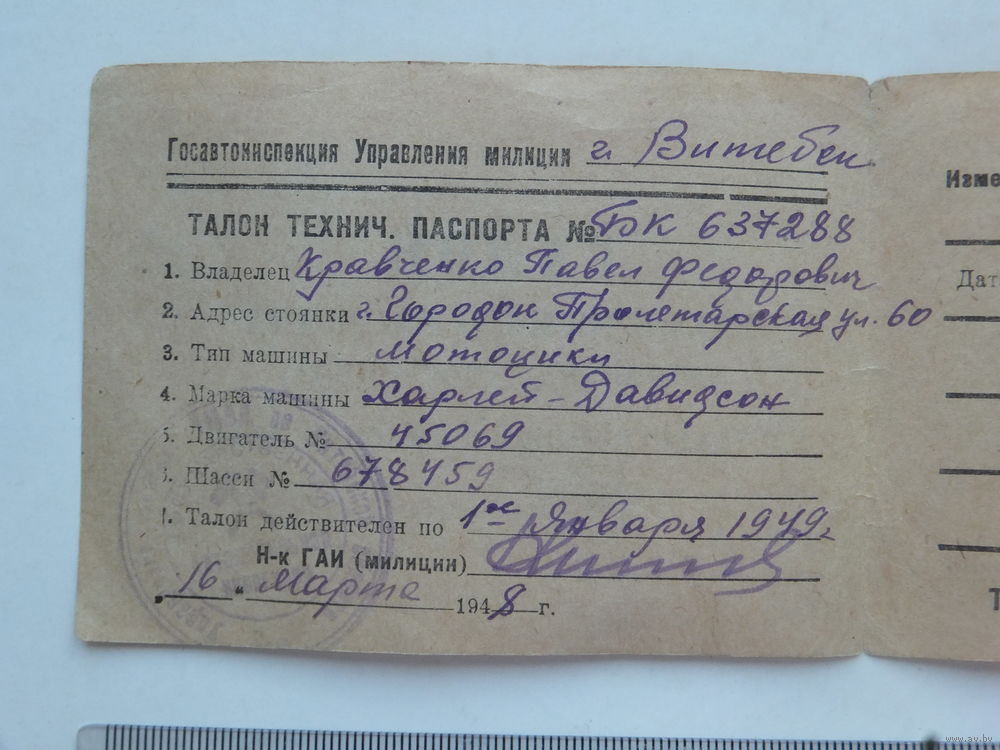 Госавтоинспекция Управления милиции г. Витебск
ТАЛОН ТЕХНИЧ. ПАСПОРТА № БК 637288
1. Владелец Кравченко Павел Федорович
2. Адрес стоянки г. Городок Пролетарская ул. 60
3. Тип машины мотоцикл
4. Марка машины Харлей-Давидсон
5. Двигатель № 45069
6. Шасси № 678459
7. Талон действителен по 1е января 1949 г.
Н-к ГАИ (милиции)
„16“ марта 1948 г.
Изме
Дат
Т
www.av.by